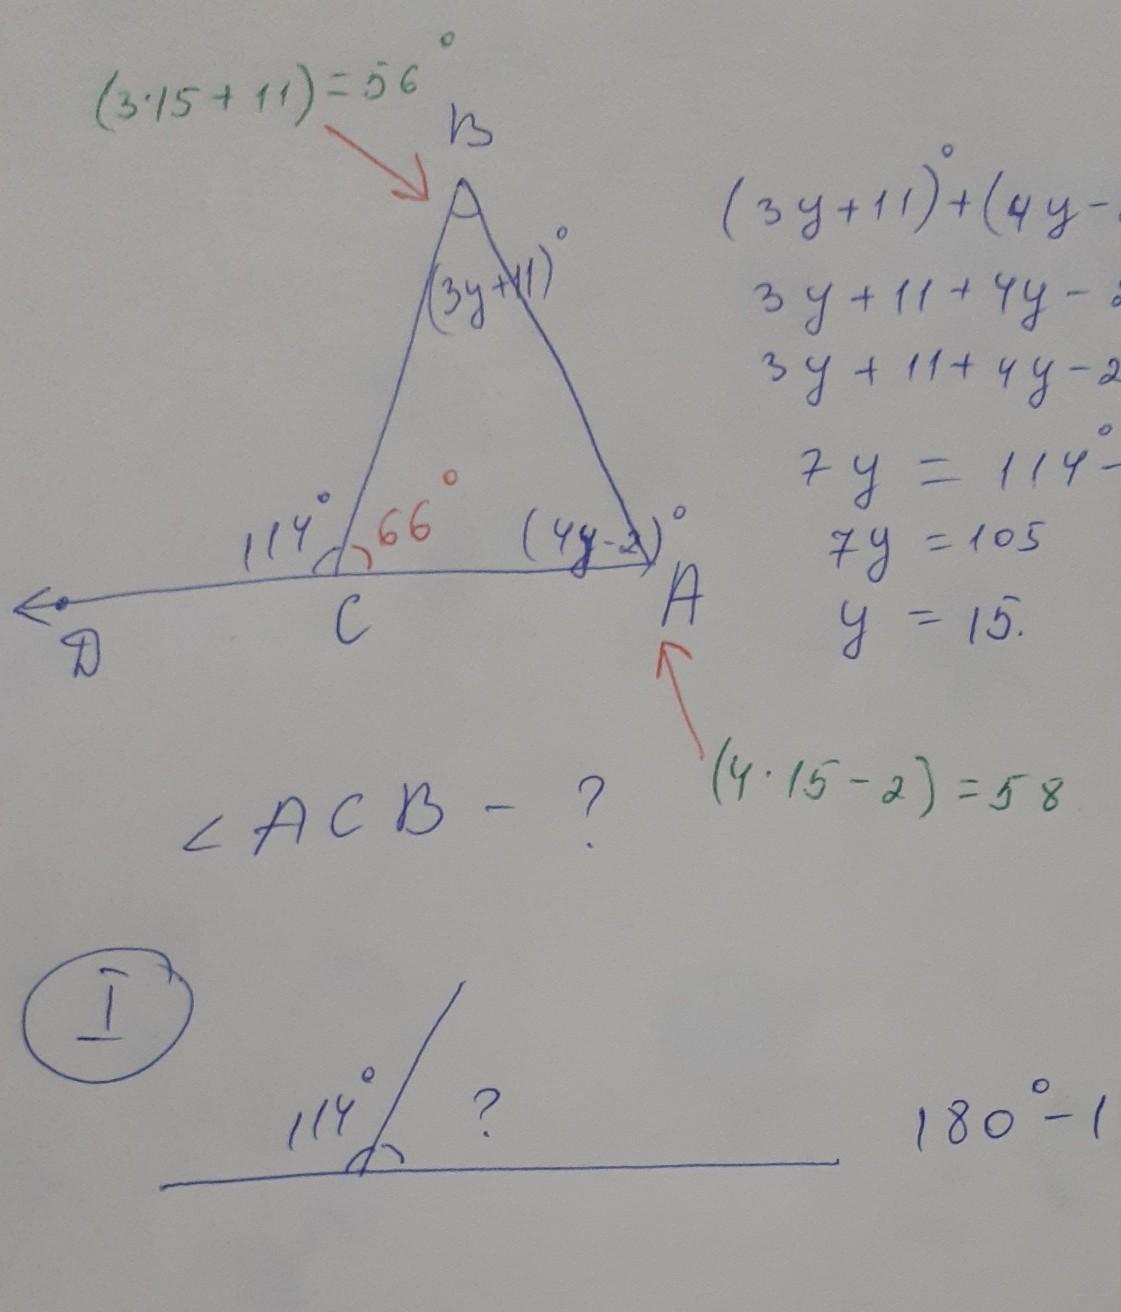 (3·15+11)=56°
B
(3y+11)°
114°
66°
(4y-2)°
D
C
A
(3y+11)°+(4y-
3y+11+4y-2
3y+11+4y-2
7y = 114°-
7y = 105
y = 15.
(4·15-2)=58
<ACB - ?
I
114°
?
180°-1